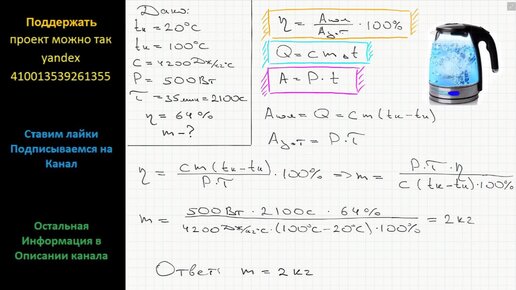 Поддержать
проект можно так
yandex
410013539261355
Ставим лайки
Подписываемся на
Канал
Остальная
Информация в
Описании канала
Дано:
tн = 20°C
tк = 100°C
C = 4200 Дж/кг°C
P = 500 Вт
τ = 35 мин = 2100 с
η = 64%
m - ?
η = Aпол / Aзат · 100%
Q = c m Δt
A = P · t
Aпол = Q = c m (tк - tн)
Aзат = P · τ
η = c m (tк - tн) / P · τ · 100% => m = P · τ · η / c (tк - tн) · 100%
m = 500 Вт · 2100 с · 64% / 4200 Дж/кг°C · (100°C - 20°C) · 100% = 2 кг
Ответ: m = 2 кг